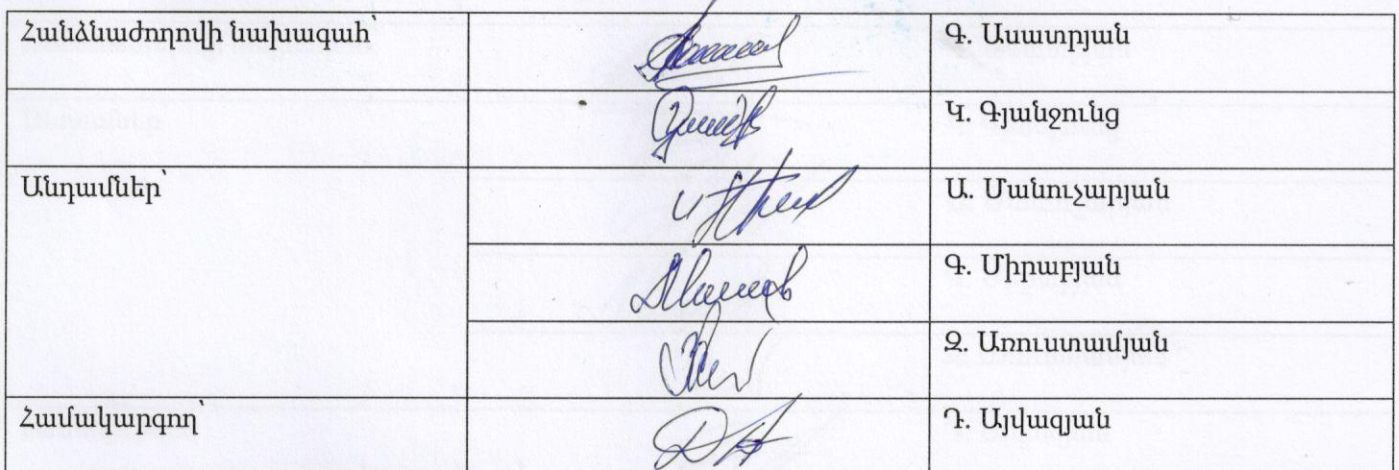 Հանձնաժողովի նախագահ՝ Գ. Ասատրյան
Կ. Գյանջունց
Անդամներ՝ Ա. Մանուչարյան
Գ. Միրաբյան
Զ. Առուստամյան
Համակարգող՝ Դ. Այվազյան